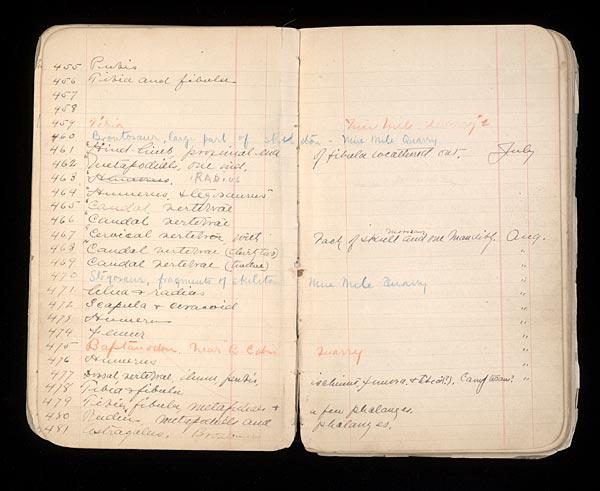 455 Pubis
456 Tibia and fibula
457
458
459 Tibia "Nine Mile Quarry"
460 Brontosaur, large part of skeleton - Nine Mile Quarry
461 Hind limb, proximal end of fibula weathered out. July
462 Metapodials, one end, "
463 Humerus. RADIUS "
464 Humerus, Stegosaurus "
465 Caudal vertebrae "
466 Caudal vertebrae "
467 Cervical vertebra with back of skull and one mandible. Aug.
468 Caudal vertebrae "
469 Caudal vertebrae "
470 Stegosaur, fragments of skeleton Nine Mile Quarry
471 Ulna & radius "
472 Scapula & coracoid "
473 Humerus "
474 Femur "
475 Baptanodon, Near B. Cabin Quarry
476 Humerus "
477 Dorsal vertebrae, ilium, pubis, ischium, femora, & "
478 Tibia & fibula
479 Tibia, fibula metapodials & a few phalanges.
480 Radius metapodials and phalanges.
481 Astragalus.